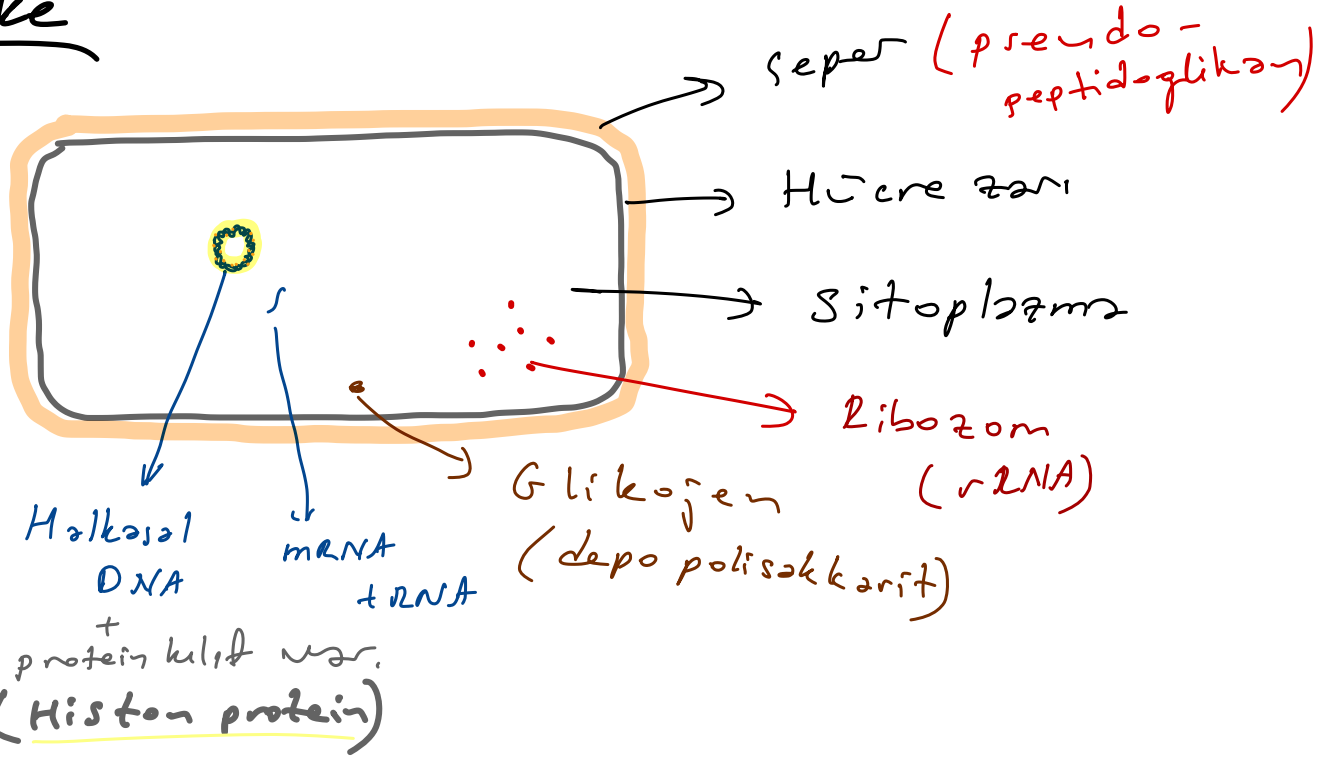 seper (pseudo-
peptidoglikan)
Hücre zarı
Sitoplazma
Ribozom
(rRNA)
Glikojen
(depo polisakkarit)
mRNA
tRNA
Halkasal
DNA
+
protein kılıf var.
(Histon protein)